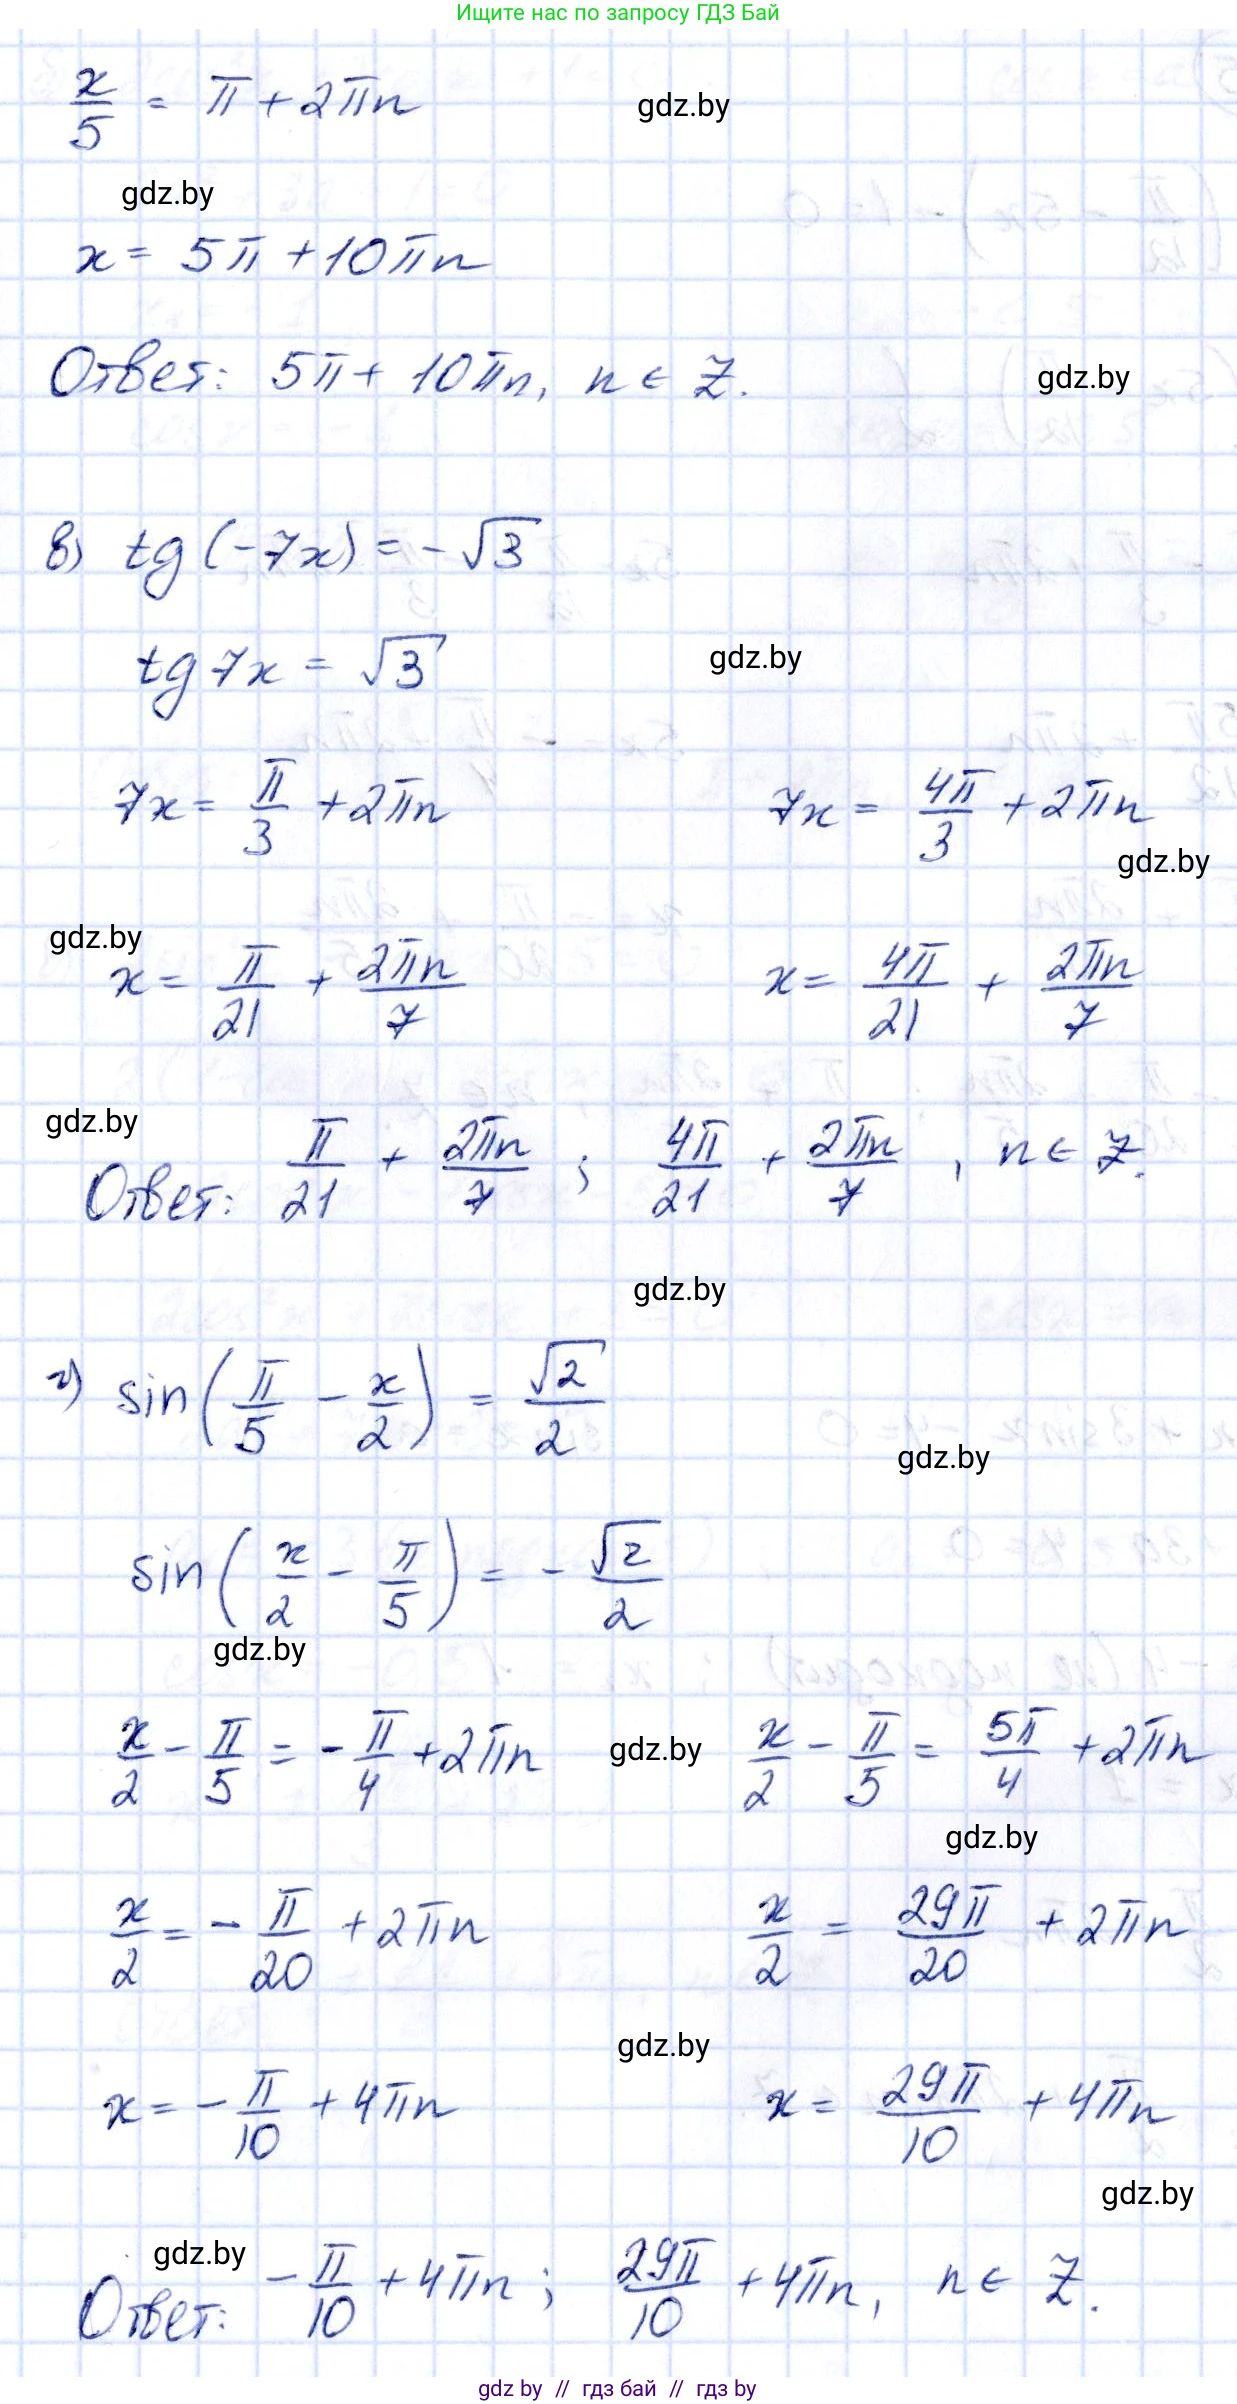 Ищите нас по запросу ГДЗ Бай
x/5 = π + 2πn
gdz.by
gdz.by
x = 5π + 10πn
Ответ: 5π + 10πn, n ∈ Z.
gdz.by
в) tg(-7x) = -√3
tg 7x = √3
gdz.by
7x = π/3 + 2πn   7x = 4π/3 + 2πn
gdz.by
gdz.by
x = π/21 + 2πn/7   x = 4π/21 + 2πn/7
gdz.by
Ответ: π/21 + 2πn/7 ; 4π/21 + 2πn/7, n ∈ Z.
gdz.by
г) sin(π/5 - x/2) = √2/2
gdz.by
sin(x/2 - π/5) = -√2/2
gdz.by
x/2 - π/5 = -π/4 + 2πn gdz.by x/2 - π/5 = 5π/4 + 2πn
gdz.by
x/2 = -π/20 + 2πn   x/2 = 29π/20 + 2πn
gdz.by
x = -π/10 + 4πn   x = 29π/10 + 4πn
gdz.by
gdz.by
Ответ: -π/10 + 4πn; 29π/10 + 4πn, n ∈ Z.
gdz by // гдз бай // гдз by